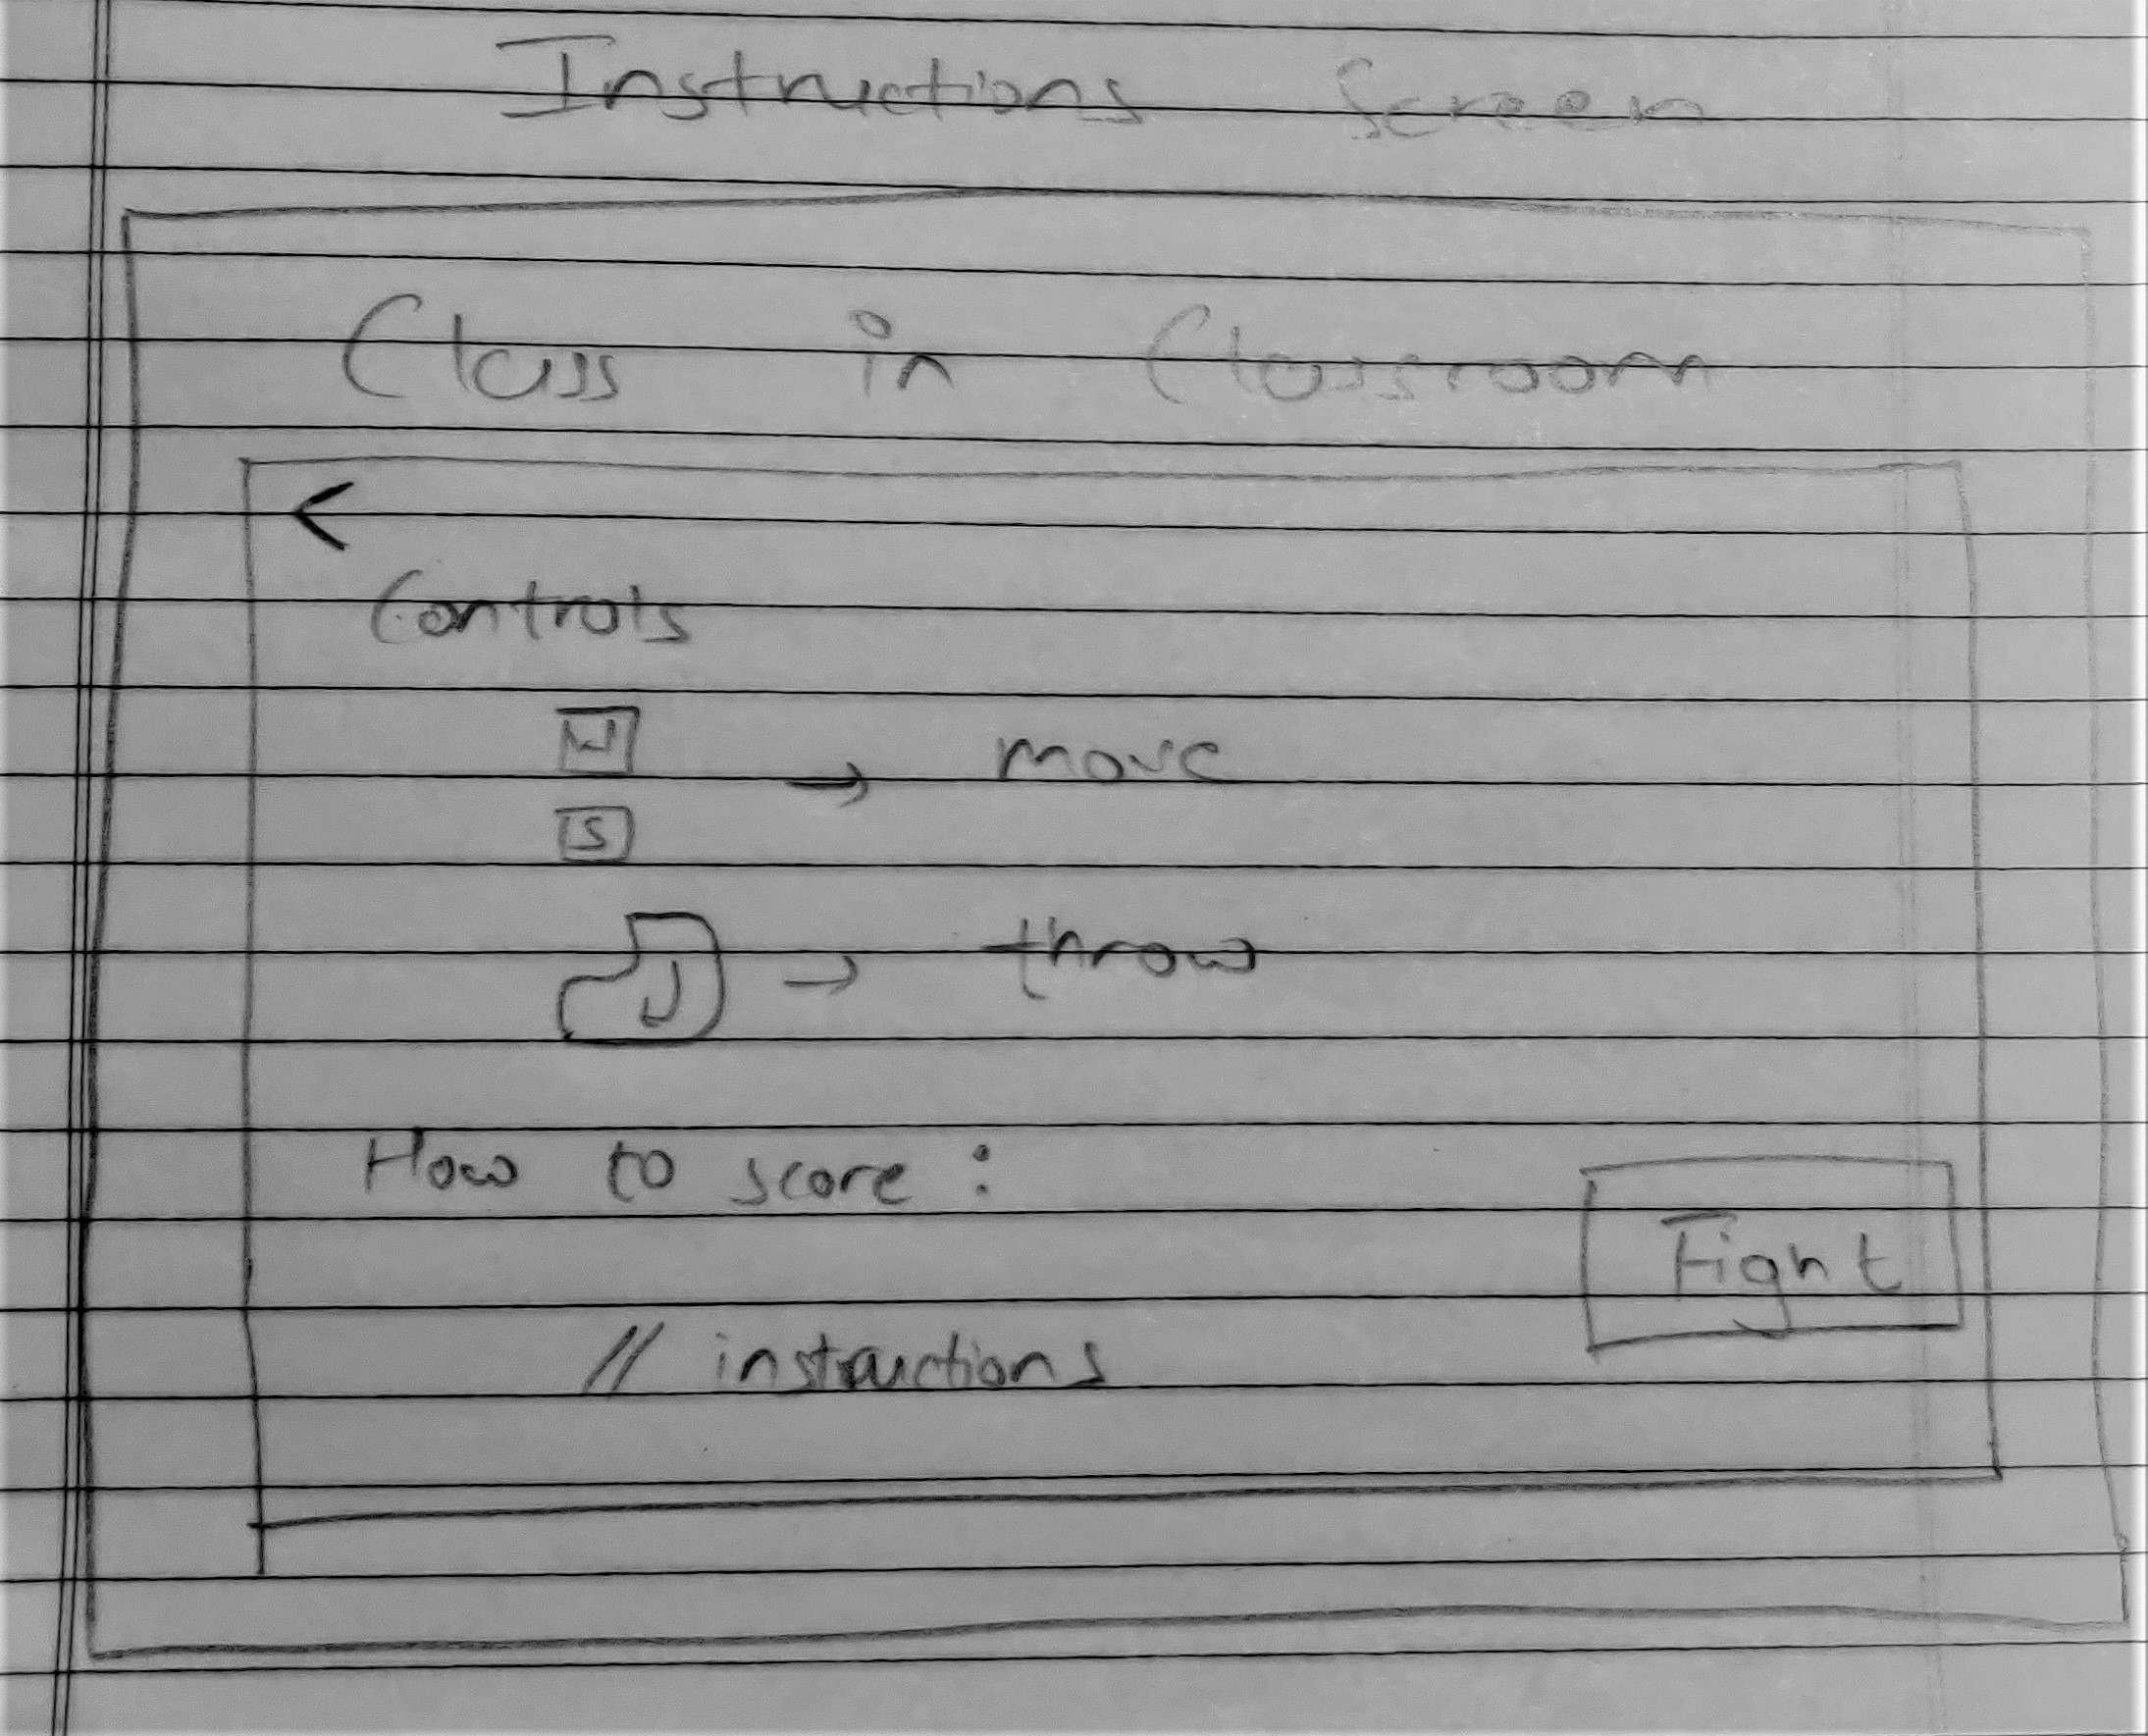 Instructions Screen
Class in Classroom
←
Controls
W
→ move
S
↵ → throw
How to score :
Fight
// instructions